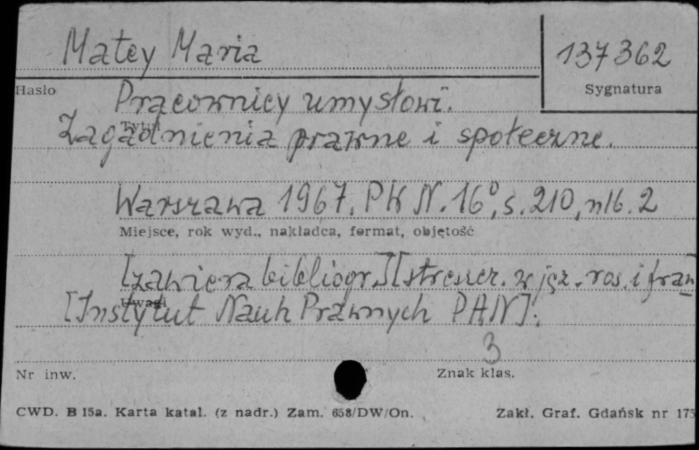 Matey Maria
137362
Hasło
Sygnatura
Pracownicy umysłowi.
Tytuł
Zagadnienia prawne i społeczne.
Warszawa 1967, PWN. 16°, s. 210, nlb. 2
Miejsce, rok wyd., nakładca, format, objętość
[zawiera bibliogr.][streszcz. w jęz. ros. i fran
Uwagi
[Instytut Nauk Prawnych PAN].
3
Nr inw.
Znak klas.
CWD. B 15a. Karta katal. (z nadr.) Zam. 658/DW/On.
Zakł. Graf. Gdańsk nr 175